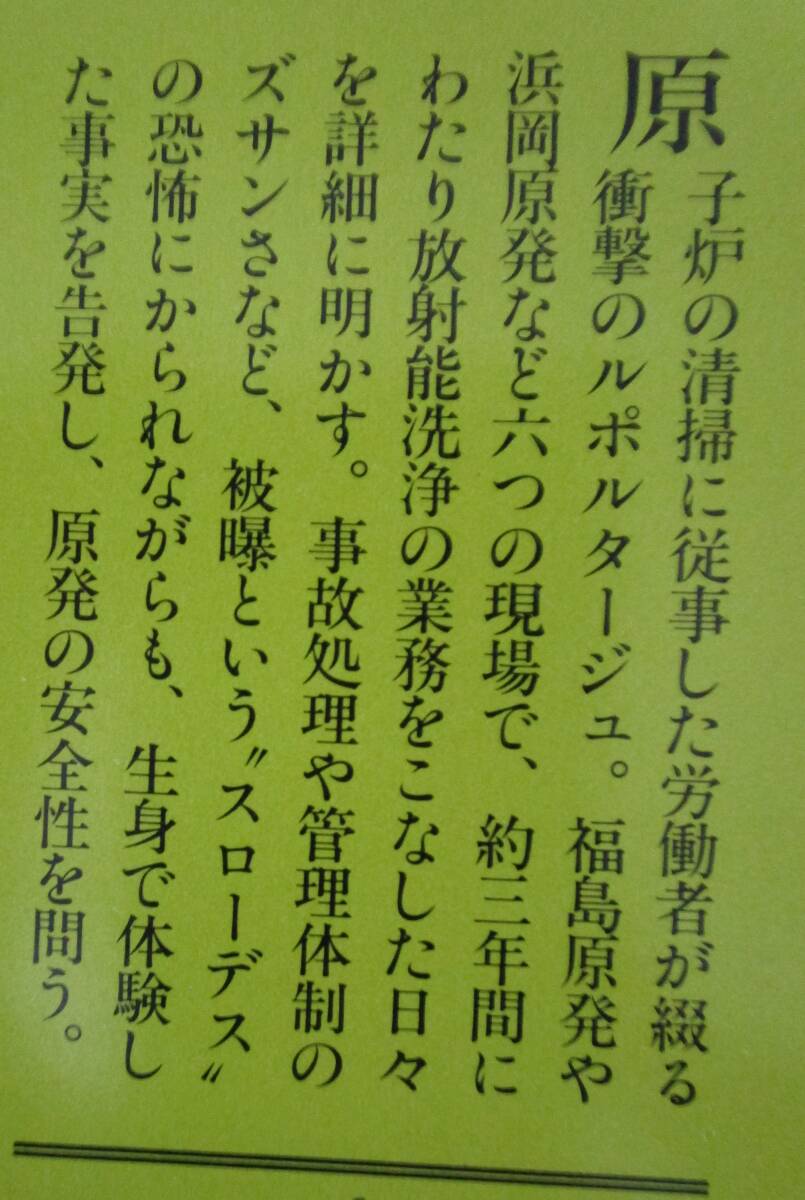 原子炉の清掃に従事した労働者が綴る
衝撃のルポルタージュ。福島原発や
浜岡原発など六つの現場で、約三年間に
わたり放射能洗浄の業務をこなした日々
を詳細に明かす。事故処理や管理体制の
ズサンさなど、被曝という〝スローデス〟
の恐怖にかられながらも、生身で体験し
た事実を告発し、原発の安全性を問う。